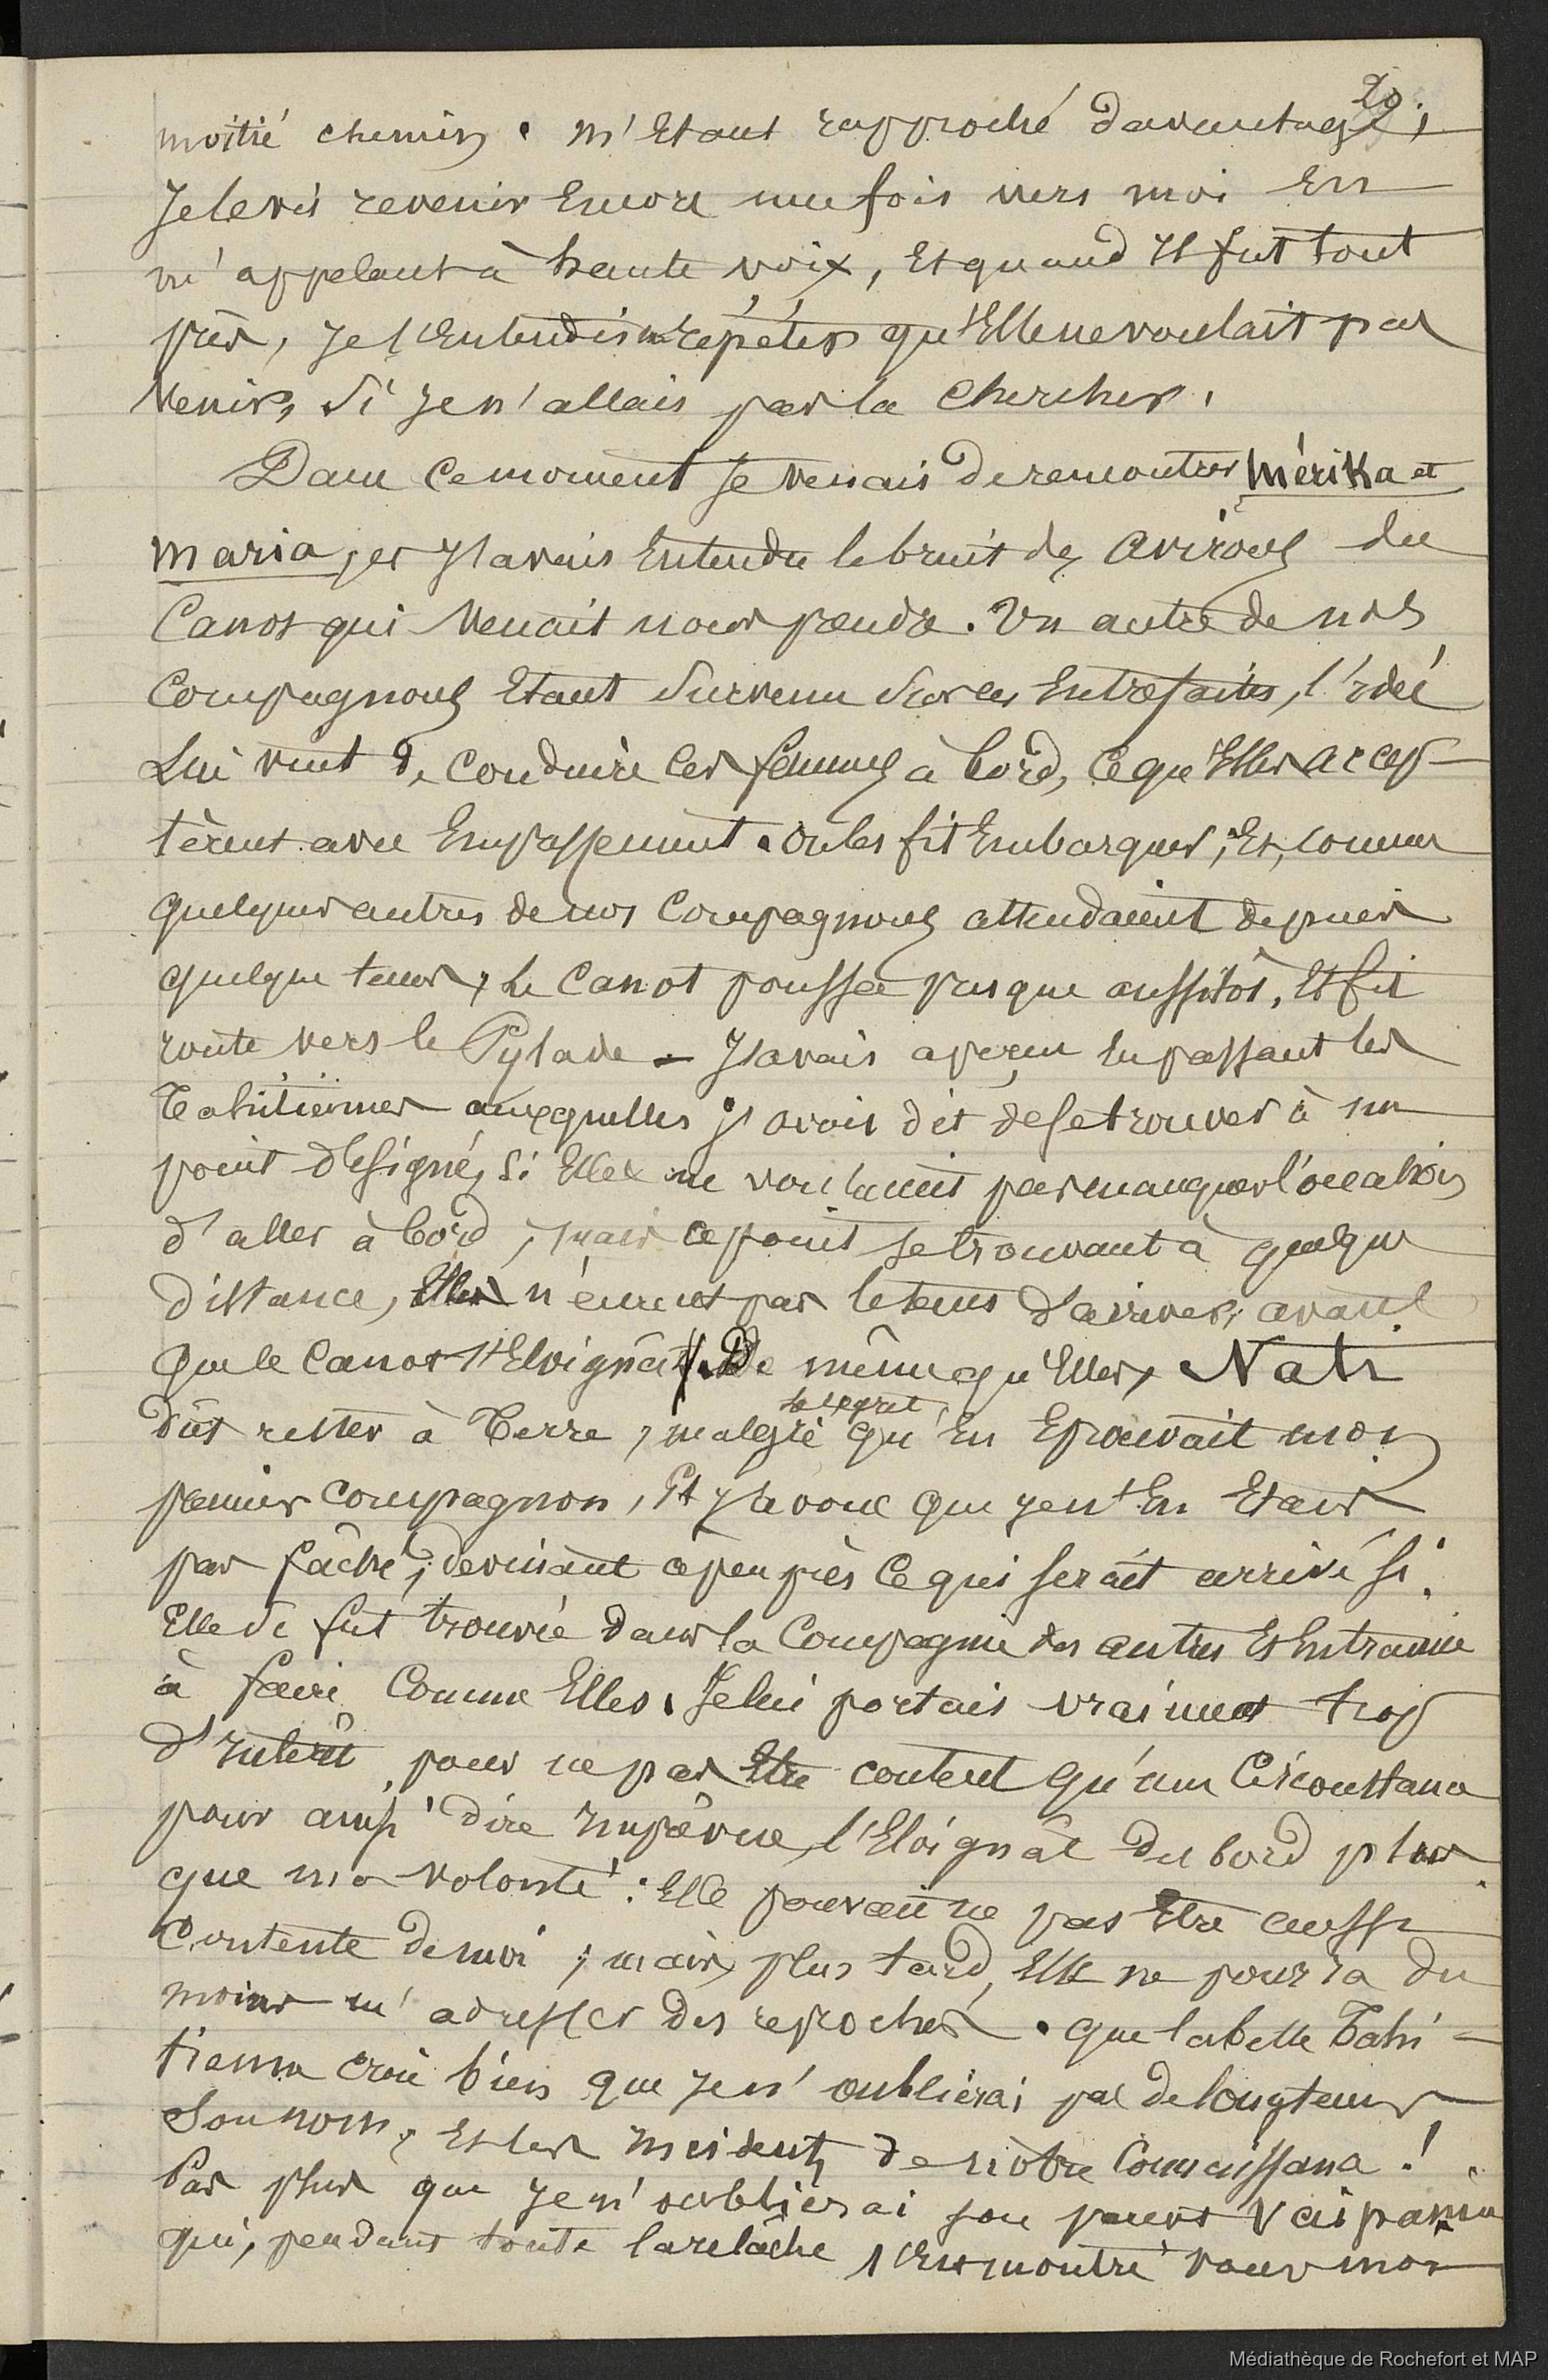 29.
moitié chemin. m'Etant rapproché davantage,
Je le vis revenir Encore une fois vers moi En
m'appelant à haute voix, Et quand Il fut tout
près, Je l'Entendis répéter qu'Elle ne voulait pas
Venir, Si Je n'allais pas la Chercher.
Dans Ce moment Je Venais de rencontrer Mérika et
Maria, et J'avais Entendu le bruit des avirons du
Canot qui Venait nous prendre. Un autre de nos
Compagnons Etant Survenu Sur ces Entrefaites, l'idée
Lui vint de Conduire les femmes à bord, Ce qu'Elles accep-
tèrent avec Empressement. On les fit Embarquer, Et, comme
quelques autres de nos Compagnons attendaient depuis
quelque tems, Le Canot poussa presque aussitôt, Et fit
route vers le Pylade - J'avais aperçu En passant les
Tahitiennes auxquelles J'avais dit de se trouver à un
point désigné, Si Elles ne voulaient pas manquer l'occasion
d'aller à bord, mais ce point se trouvant à quelque
distance, Elles n'eurent pas le tems d'arriver, avant
Que le Canot s'Eloignât. De même qu'Elles, Nati
dût rester à Terre, malgré le regret qu'En Eprouvait mon
premier Compagnon, Et J'avoue que Je n'En Etais
pas fâché, devinant à peu près Ce qui serait arrivé si
Elle Se fut trouvée dans la Compagnie des autres Et Entrainée
à faire Comme Elles. Je lui portais vraiment trop
d'Intérêt, pour ne pas Etre content qu'une Circonstance
pour ainsi dire Imprévue, l'Eloignât du bord plus
que ma volonté: Elle pouvait ne pas Etre aussi
Contente de moi, mais, plus tard, Elle ne pourra du
moins m'adresser des reproches. Que la belle Tahi-
tienne croie bien que Je n'oublierai pas de longtems
Son nom, Et les Incidents de nôtre Connaissance!
Pas plus que Je n'oublierai son parent Vaipania
qui, pendant toute la relâche s'Est montré pour mon